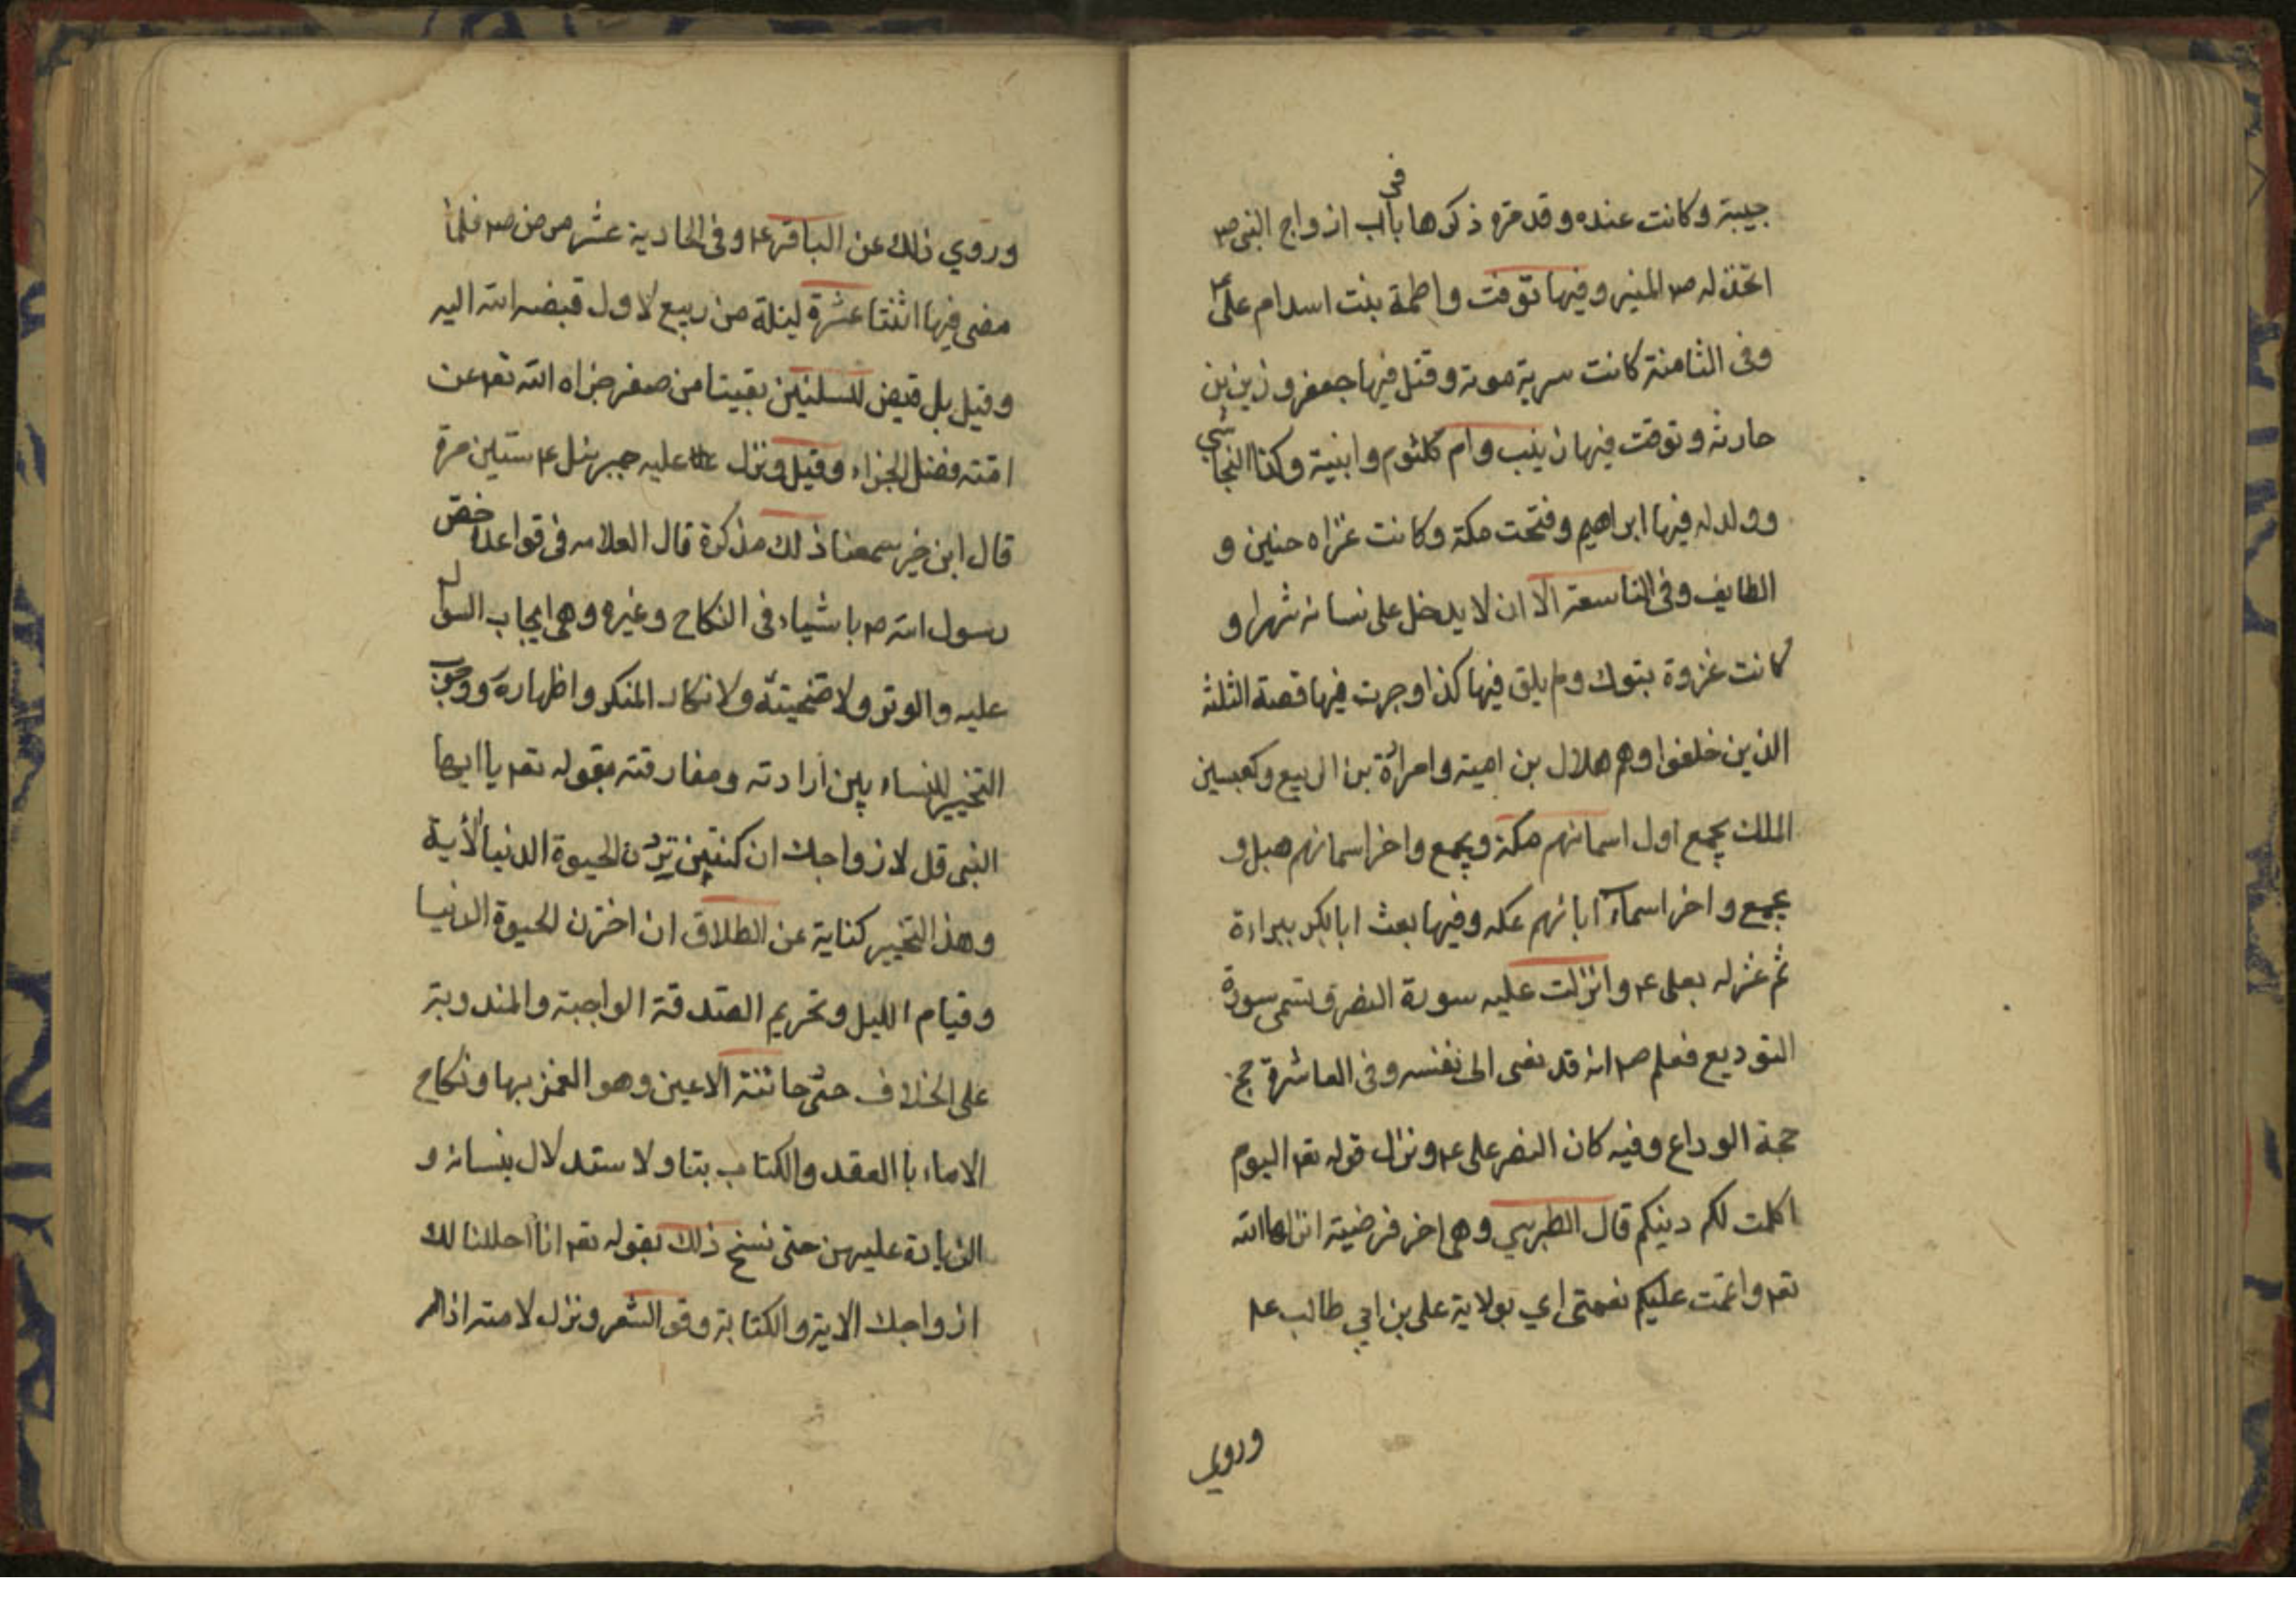 حبيبة وكانت عنده وقد مرّ ذكرها في باب ازواج النبي ص
اتخذ له ص المنبر وفيها توفت فاطمة بنت اسد ام علي ع
وفى الثامنة كانت سرية موتة وقتل فيها جعفر وزيد بن
حارثه وتوفت فيها زينب وام كلثوم وابنية وكذا النجاشي
وولد له فيها ابراهيم وفتحت مكة وكانت غزاه حنين و
الطايف وفى التاسعة الا ان لا يدخل على نسائه شهرا و
كانت غزوة بتوك ولم يلق فيها كذا وجرت فيها قصة الثلثة
الذين خلفوا وهم هلال بن امية وامرأة بن الربيع وكعب بن
الملك يجمع اول اسمائهم مكة ويجمع واخر اسمائهم هبل و
يجمع واخر اسمآء ابائهم عكه وفيها بعث ابا بكر ببراءة
ثم عزله بعلى ع وانزلت عليه سورة النصر وتسمى سورة
التوديع فعلم ص انه قد نعى الى نفسه وفى العاشرة حج
حجة الوداع وفيه كان النصر على ع ونزل قوله تع اليوم
اكملت لكم دينكم قال الطبرسي وهى اخر فرضية انزلها الله
تع واتممت عليكم نعمتى اي بولاية على بن ابي طالب ع
وروي
وروي ذلك عن الباقر ع وفى الحادية عشر مرض ص فلما
مضى فيها اثنتا عشرة ليلة من ربيع لاول قبضه الله اليه
وقيل بل قبض لليلتين بقيتا من صفر جزاه الله تع عن
امته فضل الجزاء وقيل ونزل عليه جبرئيل ع ستين مرة
قال ابن خير سمعنا ذلك مذكرة قال العلامه فى قواعد اخص
رسول الله ص باشياء فى النكاح وغيره وهى ايجاب السوال
عليه والوتر ولا ضحيتة ولا نكار المنكر واظهاره ووجوب
التخيير للنساء بين ارادته ومفارقته بقوله تع يا ايها
النبى قل لازواجك ان كنتن تردن الحيوة الدنيا الأية
وهذا التخيير كناية عن الطلاق ان اخترن الحيوة الدنيا
وقيام الليل وتحريم الصدقة الواجبة والمندوبة
على الخلاف حتى خائنة الاعين وهو الغمز بها ونكاح
الاماء با العقد والكتاب بتا ولا ستدلال بنسائه و
الزيادة عليهن حتى نسخ ذلك بقوله تع انا احللنا لك
ازواجك الاية والكتابة وقو الشعر ونزل لامته اذا